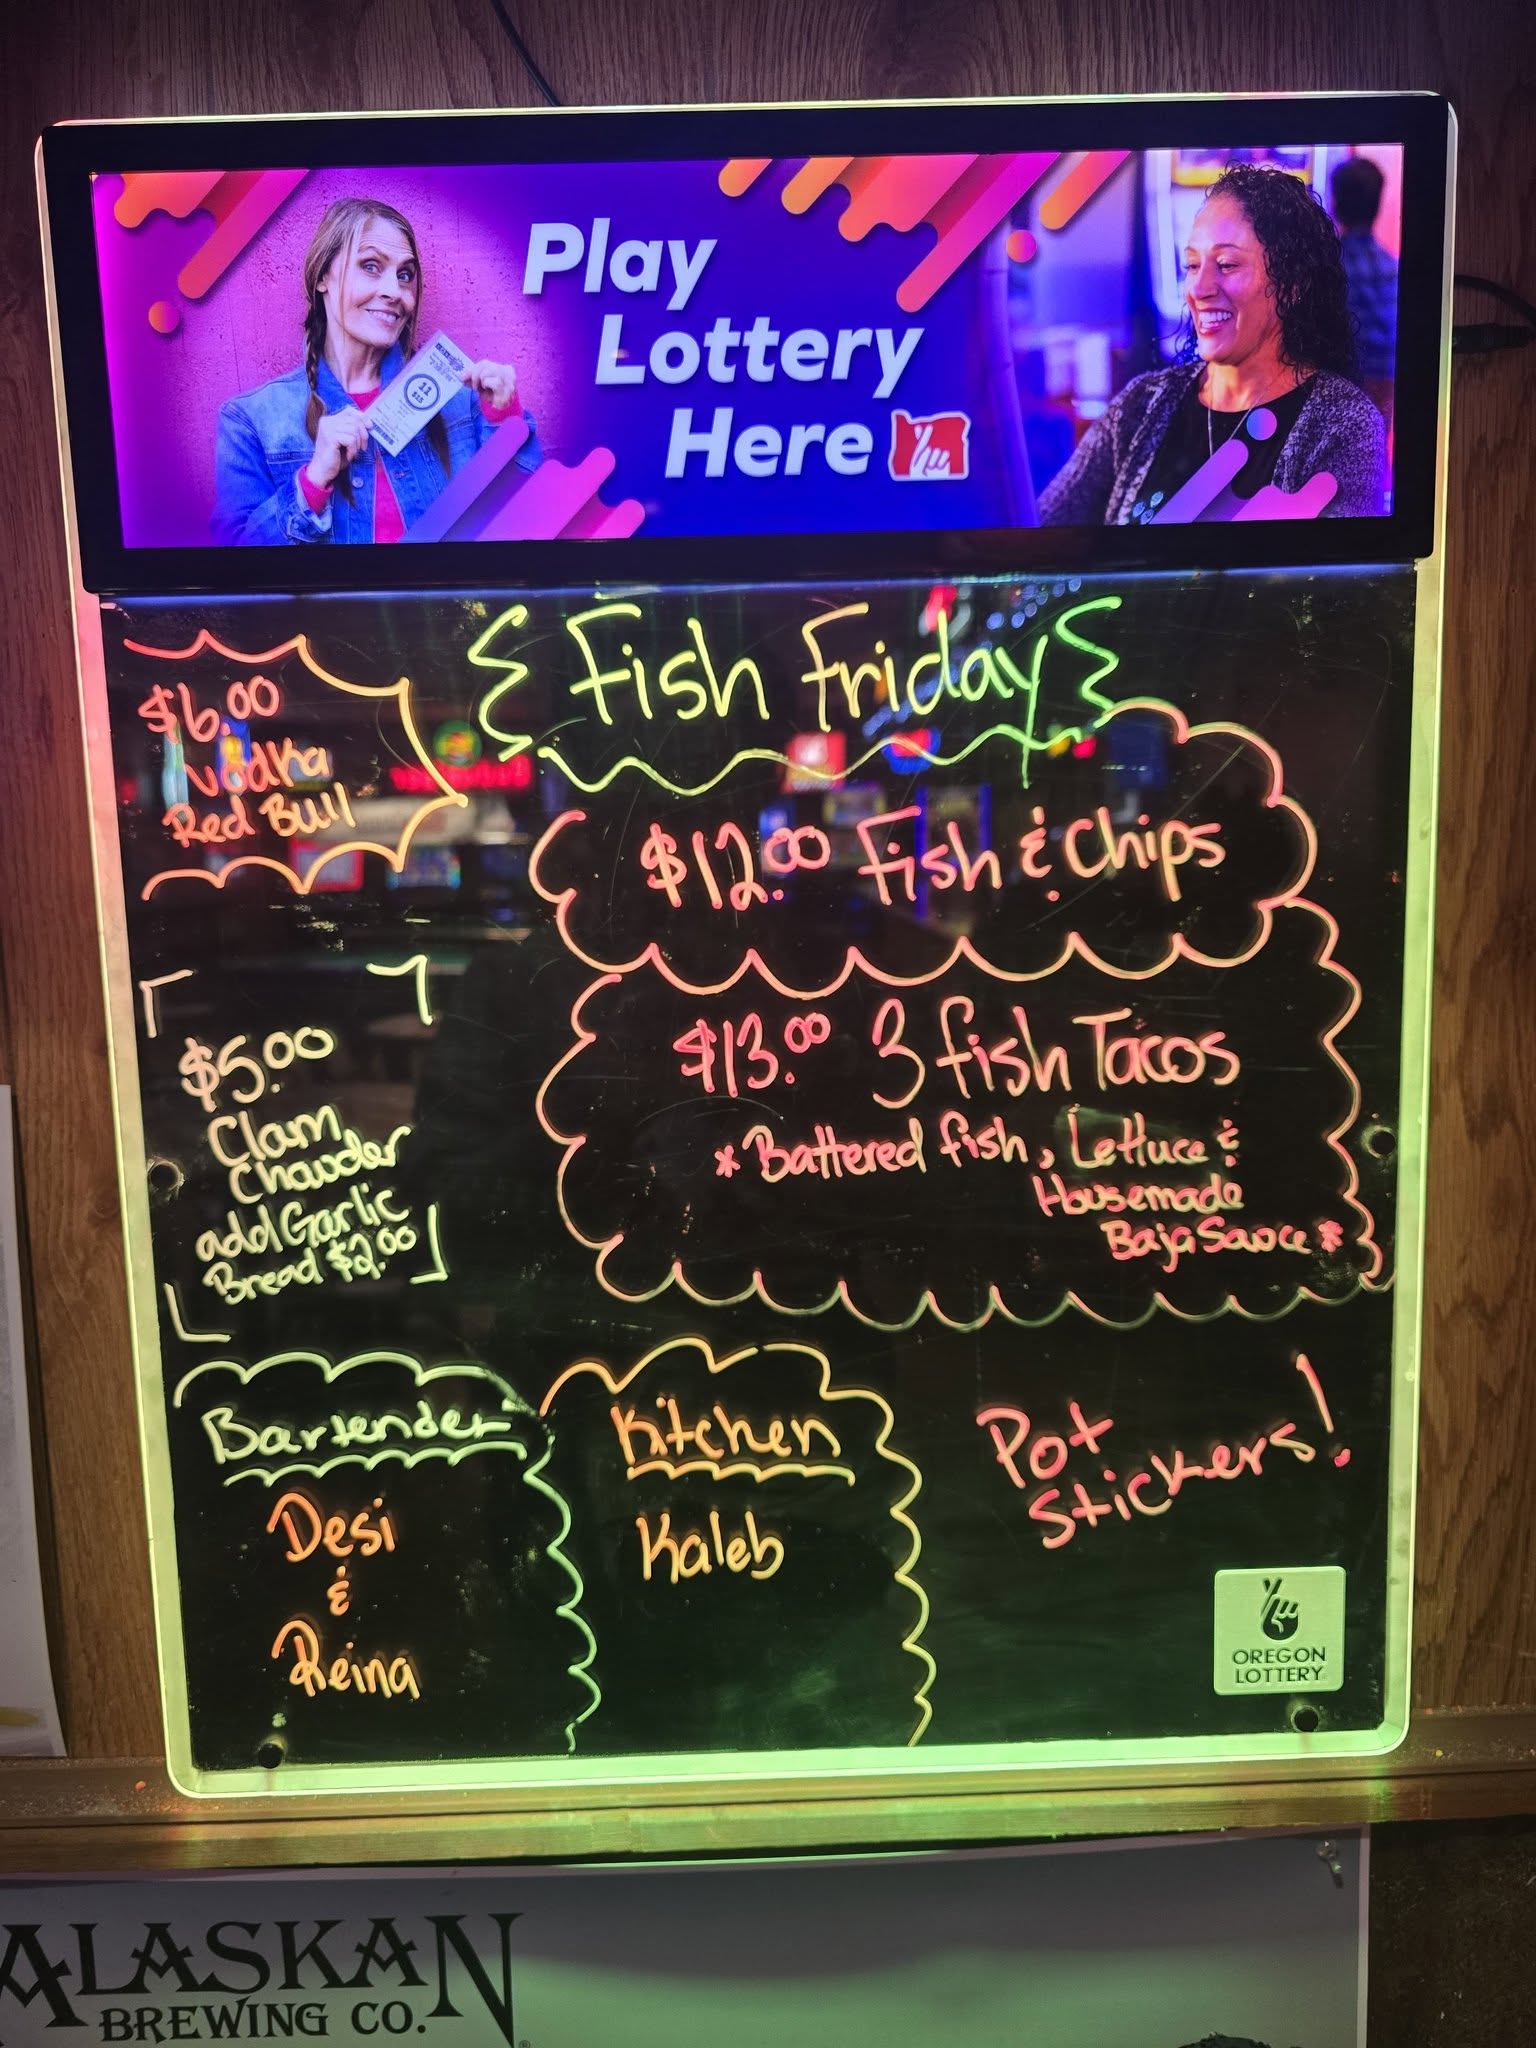 Play
Lottery
Here
{ Fish Friday }
$6.00
Vodka
Red Bull
$12.00 Fish & Chips
$13.00 3 fish Tacos
*Battered fish, Lettuce &
Housemade
Baja Sauce*
$5.00
Clam
Chowder
add Garlic
Bread $2.00
Bartender
Desi
&
Reina
Kitchen
Kaleb
Pot
Stickers!
OREGON
LOTTERY
ALASKAN
BREWING CO.